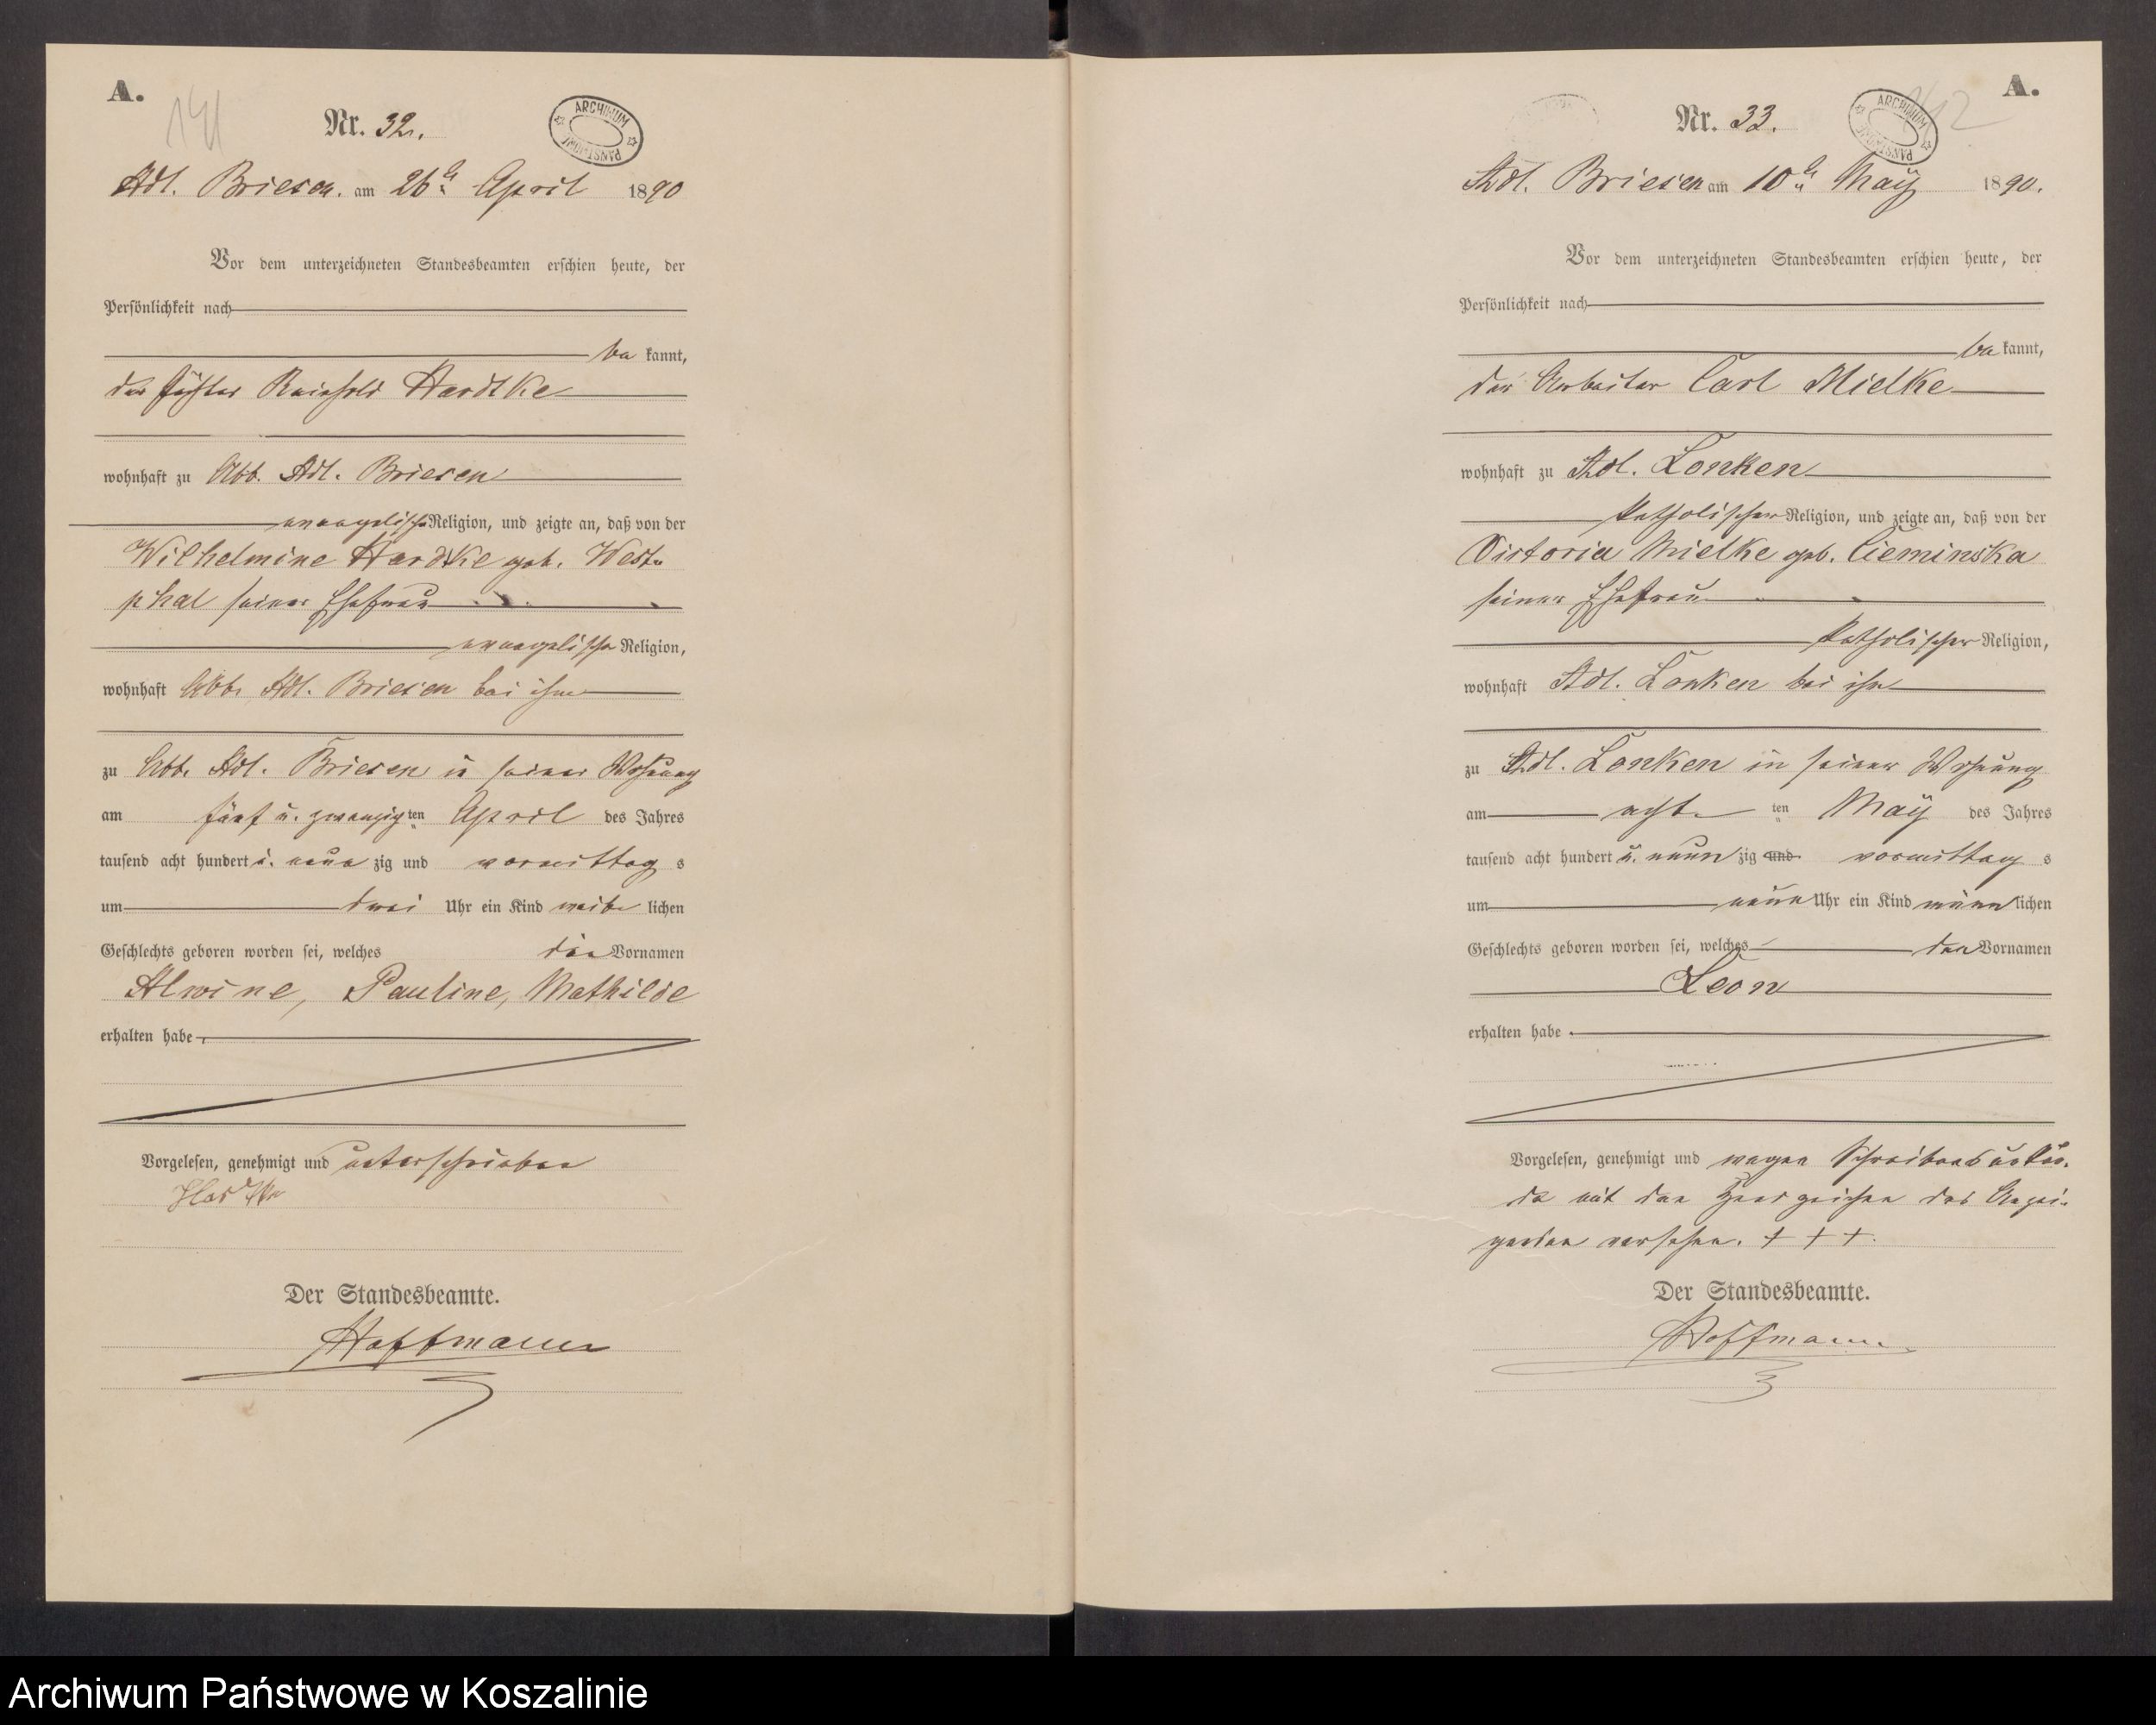 A.
141
Nr. 32.
ARCHIWUM PAŃSTWOWE
Adl. Briesen. am 26ten April 1890
Vor dem unterzeichneten Standesbeamten erschien heute, der
Persönlichkeit nach
be kannt,
der Pächter Reinhold Hardtke
wohnhaft zu Abb. Adl. Briesen
evangelischer Religion, und zeigte an, daß von der
Wilhelmine Hardtke geb. West-
phal seiner Ehefrau
evangelischer Religion,
wohnhaft Abb. Adl. Briesen bei ihm
zu Abb. Adl. Briesen in seiner Wohnung
am fünf u. zwanzig ten April des Jahres
tausend acht hundert u. neun zig und vormittag s
um drei Uhr ein Kind weib lichen
Geschlechts geboren worden sei, welches die Vornamen
Alwine, Pauline, Mathilde
erhalten habe
Vorgelesen, genehmigt und unterschrieben
Hardtke
Der Standesbeamte.
Hoffmann
A.
142
Nr. 33.
ARCHIWUM PAŃSTWOWE
Adl. Briesen am 10ten May 1890.
Vor dem unterzeichneten Standesbeamten erschien heute, der
Persönlichkeit nach
be kannt,
der Arbeiter Carl Mielke
wohnhaft zu Adl. Lonken
katholischer Religion, und zeigte an, daß von der
Victoria Mielke geb. Cieminska
seiner Ehefrau
katholischer Religion,
wohnhaft Adl. Lonken bei ihm
zu Adl. Lonken in seiner Wohnung
am acht ten May des Jahres
tausend acht hundert u. neun zig und vormittag s
um neun Uhr ein Kind männ lichen
Geschlechts geboren worden sei, welches den Vornamen
Leon
erhalten habe
Vorgelesen, genehmigt und wegen Schreibensunkun-
de mit den Handzeichen des Anzei-
genden versehen. + + +.
Der Standesbeamte.
Hoffmann
Archiwum Państwowe w Koszalinie